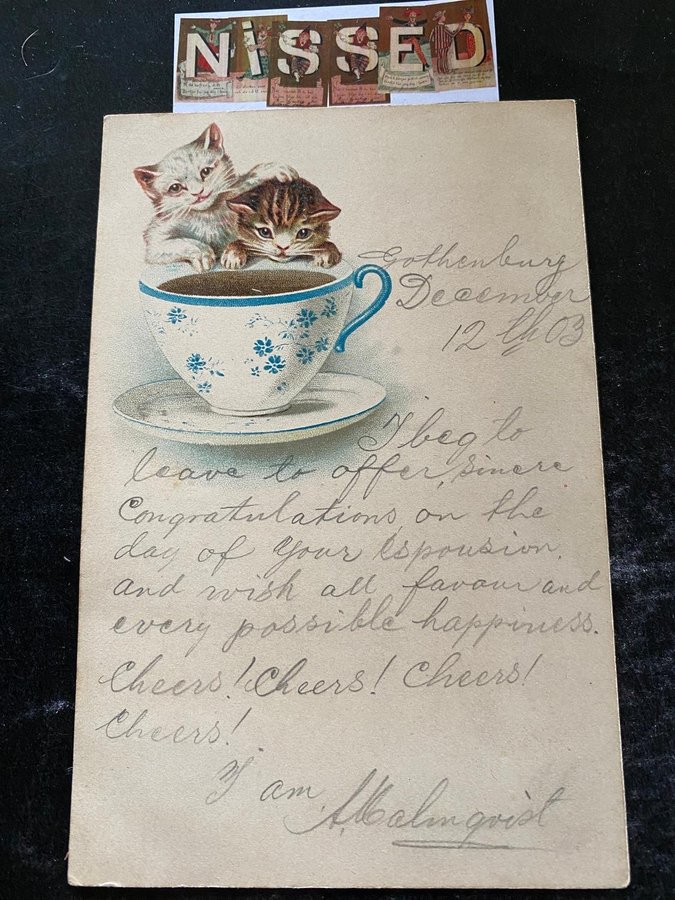 NISSED
Gothenburg
December
12th 03
I beg to
leave to offer, sincere
Congratulations, on the
day of Your Espousion,
and wish all favour and
every possible happiness.
Cheers! Cheers! Cheers!
Cheers!
I am
A. Malmqvist